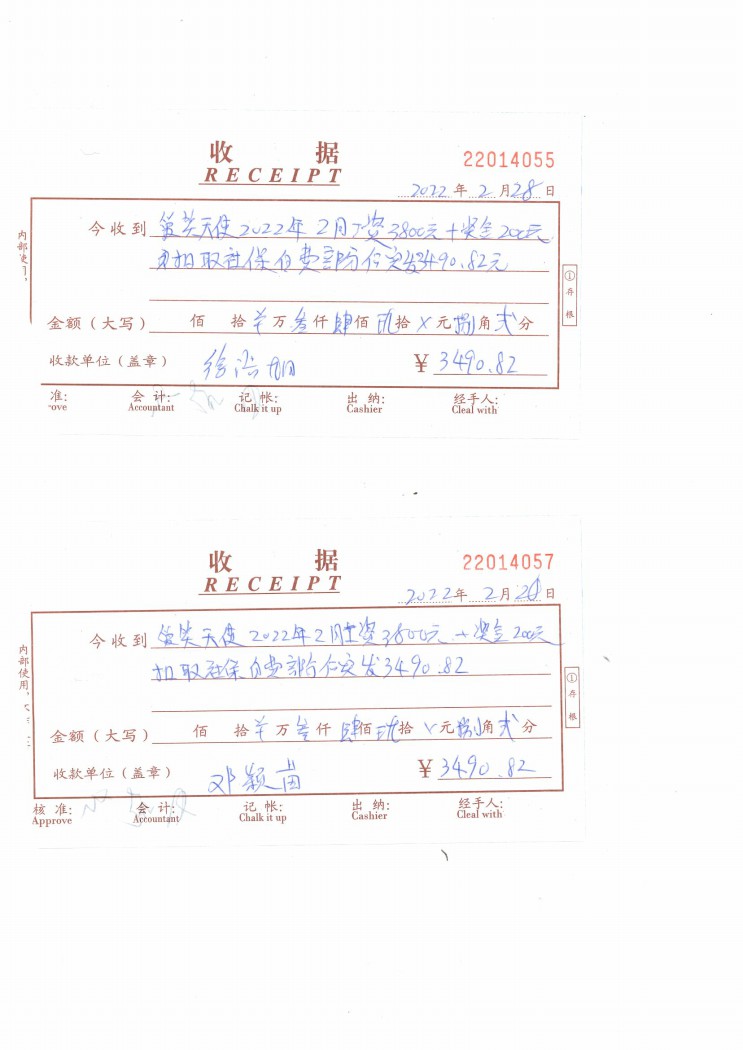 收 据
22014055
RECEIPT
2022 年 2 月 28 日
今收到 笑天使2022年 2月工资3800元+奖金200元
扣取社保自费部分仅实发3490.82元
内部使用,
①存根
金额(大写) 佰 拾 ¥ 万 叁 仟 肆 佰 玖 拾 X 元 捌 角 弍 分
收款单位(盖章) 徐 ¥ 3490.82
准: 会 计: 记 帐: 出 纳: 经手人:
ove Accountant Chalk it up Cashier Cleal with
收 据
22014057
RECEIPT
2022 年 2 月 28 日
今收到 笑天使2022年2月工资3800元+奖金200元
扣取社保自费部分仅实发3490.82
内部使用,
①存根
金额(大写) 佰 拾 ¥ 万 叁 仟 肆 佰 玖 拾 X 元 捌 角 弍 分
收款单位(盖章) 邓颖苗 ¥ 3490.82
核 准: 会 计: 记 帐: 出 纳: 经手人:
Approve Accountant Chalk it up Cashier Cleal with